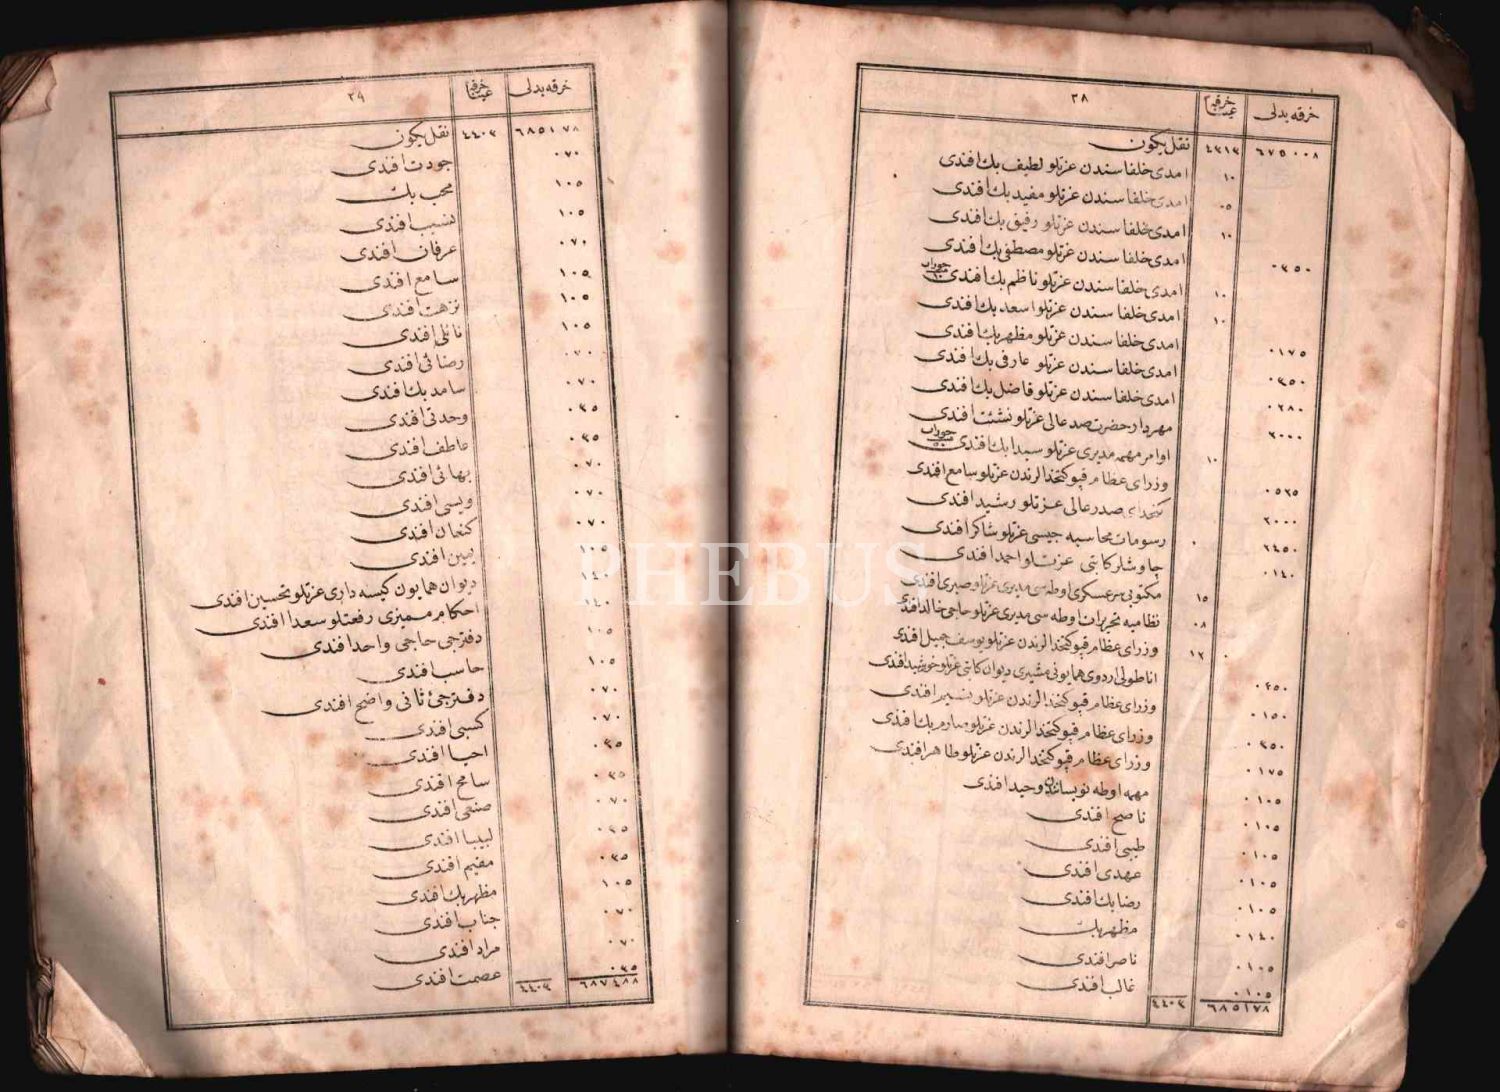 ٣٨
خرقه بدلی
خرقه عینا
نقل یکون ٤٣١٣ ٦٧٥٠٠٨
امدی خلفا سندن عزتلو لطیف بك افندی ١٠
امدی خلفا سندن عزتلو مفید بك افندی ٠٥
امدی خلفا سندن عزتلو رفیق بك افندی ١٠
امدی خلفا سندن عزتلو مصطفی بك افندی ٠٣٥٠
امدی خلفا سندن عزتلو ناظم بك افندی جوراب ١٠
امدی خلفا سندن عزتلو اسعد بك افندی ١٠
امدی خلفا سندن عزتلو مظهر بك افندی ٠١٧٥
امدی خلفا سندن عزتلو عارفی بك افندی ٠٣٥٠
امدی خلفا سندن عزتلو فاضل بك افندی ٠٢٨٠
مهردار حضرت صدر عالی عزتلو نشئت افندی ٢٠٠٠
اوامر مهمه مدیری عزتلو سیدا بك افندی جوراب ١٠
وزرای عظام قپو کتخدا لرندن عزتلو سامع افندی ٠٥٢٥
کتخدای صدر عالی عزتلو رشید افندی ٢٠٠٠
رسومات محاسبه جیسی عزتلو شاکر افندی ٢٤٥٠
جاوشلر کاتبی عزتلو احمد افندی ٠١٤٠
مکتوبی سر عسکری اوطه سی مدیری عزتلو صبری افندی ١٥
نظامیه تحریرات اوطه سی مدیری عزتلو حاجی خالد افندی ٠٨
وزرای عظام قپو کتخدا لرندن عزتلو یوسف جمیل افندی ١٢
اناطولی اردوی همایونی مشیری دیوان کاتبی عزتلو خورشید افندی ٠٢٥٠
وزرای عظام قپو کتخدا لرندن عزتلو افندی ٠١٥٠
وزرای عظام قپو کتخدا لرندن عزتلو صارم بك افندی ٠٣٥٠
وزرای عظام قپو کتخدا لرندن عزتلو طاهر افندی ٠١٧٥
مهمه اوطه نویساندن وحید افندی ٠١٠٥
ناصح افندی ٠١٠٥
طیبی افندی ٠١٠٥
عهدی افندی ٠١٠٥
رضا بك افندی ٠١٠٥
مظهر بك ٠١٤٠
ناصر افندی ٠١٠٥
غالب افندی ٠١٠٥
٤٤٠٣ ٦٨٥١٧٨
٣٩
خرقه بدلی
خرقه عینا
نقل یکون ٤٤٠٣ ٦٨٥١٧٨
جودت افندی ٠٧٠
محب بك ١٠٥
نسیب افندی ١٠٥
عرفان افندی ٠٧٠
سامع افندی ١٠٥
نزهت افندی ١٠٥
نائلی افندی ١٠٥
رضائی افندی ٠٧٠
سامد بك افندی ٠٧٠
وحدتی افندی ٠٣٥
عاطف افندی ٠٣٥
بهائی افندی ٠٧٠
ویسی افندی ٠٧٠
کنعان افندی ٠٧٠
یمین افندی ١٠٥
دیوان همایون کیسه داری عزتلو تحسین افندی ١٤٠
احکام ممیزی رفعتلو سعدا افندی ١٤٠
دفترجی حاجی واحد افندی ١٠٥
حاسب افندی ١٠٥
دفترجئ ثانی واضح افندی ٠٧٠
کسبی افندی ٠٧٠
احیا افندی ٠٣٥
سامح افندی ٠٣٥
صنعی افندی ٠٧٠
لبیبا افندی ٠٣٥
مقیم افندی ٠٣٥
مظهر بك افندی ١٠٥
جناب افندی ٠٧٠
مراد افندی ٠٧٠
عصمت افندی ٠٣٥
٤٤٠٣ ٦٨٧٤٨٨
PHEBUS